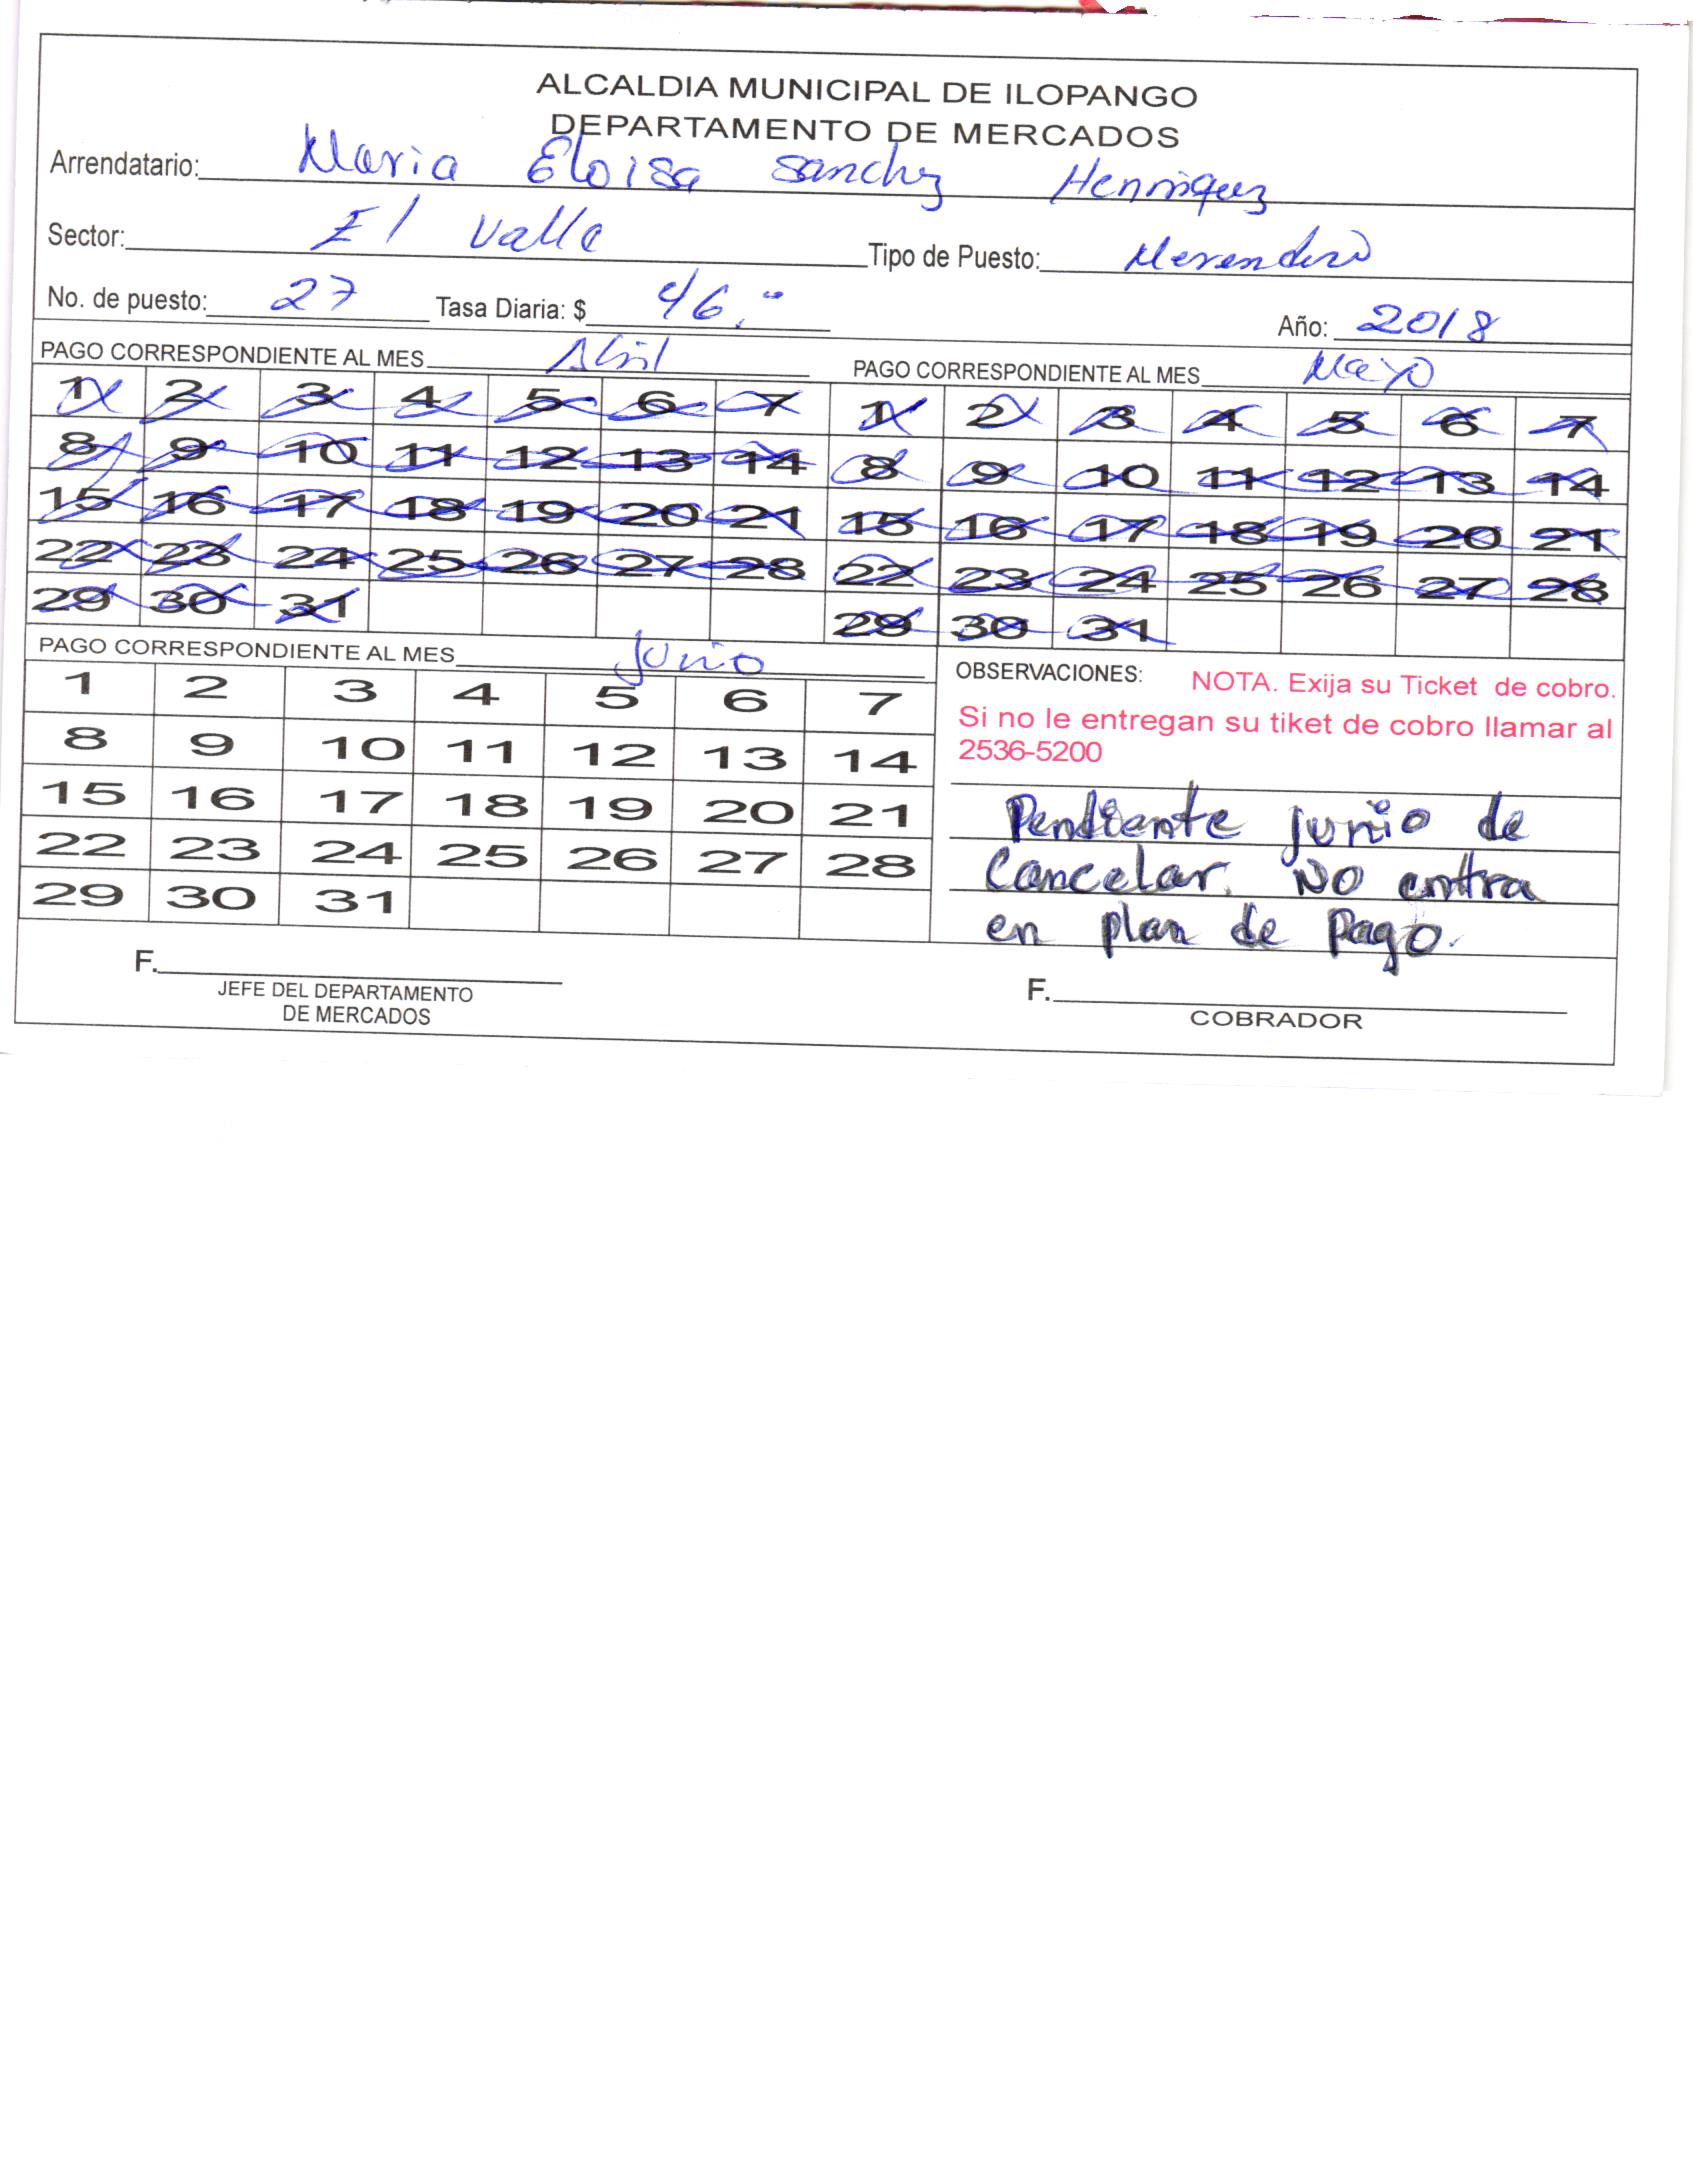 ALCALDIA MUNICIPAL DE ILOPANGO
DEPARTAMENTO DE MERCADOS
Arrendatario: Maria Eloisa Sanchez Henriquez
Sector: El Valle Tipo de Puesto: Merendero
No. de puesto: 27 Tasa Diaria: $ 46.00 Año: 2018
PAGO CORRESPONDIENTE AL MES Abril PAGO CORRESPONDIENTE AL MES Mayo
1 2 3 4 5 6 7 1 2 3 4 5 6 7
8 9 10 11 12 13 14 8 9 10 11 12 13 14
15 16 17 18 19 20 21 15 16 17 18 19 20 21
22 23 24 25 26 27 28 22 23 24 25 26 27 28
29 30 31 29 30 31
PAGO CORRESPONDIENTE AL MES Junio
1 2 3 4 5 6 7
8 9 10 11 12 13 14
15 16 17 18 19 20 21
22 23 24 25 26 27 28
29 30 31
OBSERVACIONES: NOTA. Exija su Ticket de cobro.
Si no le entregan su tiket de cobro llamar al
2536-5200
Pendiente junio de
Cancelar. No entra
en plan de Pago.
F.
JEFE DEL DEPARTAMENTO
DE MERCADOS
F.
COBRADOR